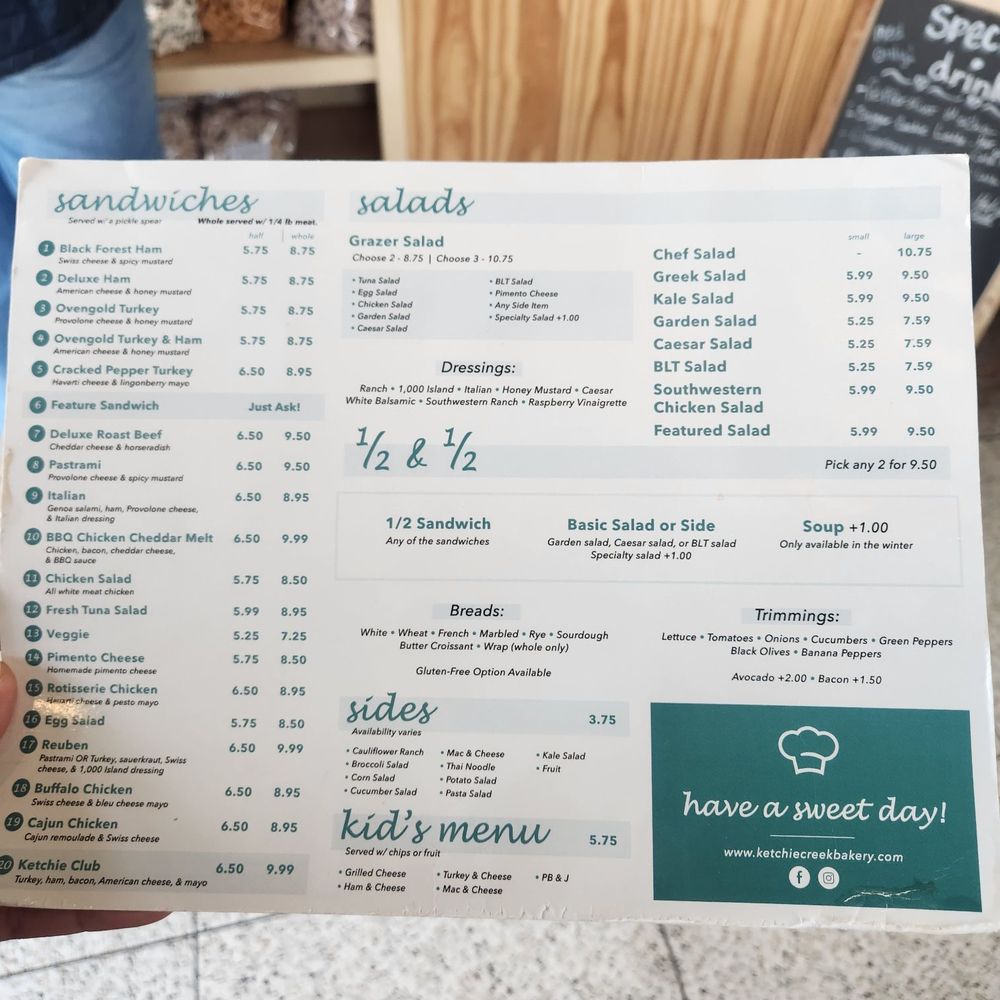 sandwiches
Served w/ a pickle spear Whole served w/ 1/4 lb meat.
half whole
1 Black Forest Ham 5.75 8.75
Swiss cheese & spicy mustard
2 Deluxe Ham 5.75 8.75
American cheese & honey mustard
3 Ovengold Turkey 5.75 8.75
Provolone cheese & honey mustard
4 Ovengold Turkey & Ham 5.75 8.75
American cheese & honey mustard
5 Cracked Pepper Turkey 6.50 8.95
Havarti cheese & lingonberry mayo
6 Feature Sandwich Just Ask!
7 Deluxe Roast Beef 6.50 9.50
Cheddar cheese & horseradish
8 Pastrami 6.50 9.50
Provolone cheese & spicy mustard
9 Italian 6.50 8.95
Genoa salami, ham, Provolone cheese,
& Italian dressing
10 BBQ Chicken Cheddar Melt 6.50 9.99
Chicken, bacon, cheddar cheese,
& BBQ sauce
11 Chicken Salad 5.75 8.50
All white meat chicken
12 Fresh Tuna Salad 5.99 8.95
13 Veggie 5.25 7.25
14 Pimento Cheese 5.75 8.50
Homemade pimento cheese
15 Rotisserie Chicken 6.50 8.95
Havarti cheese & pesto mayo
16 Egg Salad 5.75 8.50
17 Reuben 6.50 9.99
Pastrami OR Turkey, sauerkraut, Swiss
cheese, & 1,000 Island dressing
18 Buffalo Chicken 6.50 8.95
Swiss cheese & bleu cheese mayo
19 Cajun Chicken 6.50 8.95
Cajun remoulade & Swiss cheese
20 Ketchie Club 6.50 9.99
Turkey, ham, bacon, American cheese, & mayo
salads
Grazer Salad
Choose 2 - 8.75 | Choose 3 - 10.75
• Tuna Salad
• Egg Salad
• Chicken Salad
• Garden Salad
• Caesar Salad
• BLT Salad
• Pimento Cheese
• Any Side Item
• Specialty Salad +1.00
Dressings:
Ranch • 1,000 Island • Italian • Honey Mustard • Caesar
White Balsamic • Southwestern Ranch • Raspberry Vinaigrette
small large
Chef Salad - 10.75
Greek Salad 5.99 9.50
Kale Salad 5.99 9.50
Garden Salad 5.25 7.59
Caesar Salad 5.25 7.59
BLT Salad 5.25 7.59
Southwestern 5.99 9.50
Chicken Salad
Featured Salad 5.99 9.50
1/2 & 1/2
Pick any 2 for 9.50
1/2 Sandwich
Any of the sandwiches
Basic Salad or Side
Garden salad, Caesar salad, or BLT salad
Specialty salad +1.00
Soup +1.00
Only available in the winter
Breads:
White • Wheat • French • Marbled • Rye • Sourdough
Butter Croissant • Wrap (whole only)
Gluten-Free Option Available
Trimmings:
Lettuce • Tomatoes • Onions • Cucumbers • Green Peppers
Black Olives • Banana Peppers
Avocado +2.00 • Bacon +1.50
sides 3.75
Availability varies
• Cauliflower Ranch
• Broccoli Salad
• Corn Salad
• Cucumber Salad
• Mac & Cheese
• Thai Noodle
• Potato Salad
• Pasta Salad
• Kale Salad
• Fruit
kid's menu 5.75
Served w/ chips or fruit
• Grilled Cheese
• Ham & Cheese
• Turkey & Cheese
• Mac & Cheese
• PB & J
have a sweet day!
www.ketchiecreekbakery.com